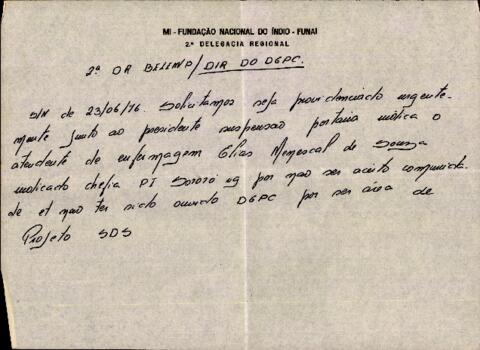 MI - FUNDAÇÃO NACIONAL DO ÍNDIO - FUNAI
2.ª DELEGACIA REGIONAL
2ª DR BELEMP/DIR DO DGPC.
S/N de 23/06/76. Solicitamos seja providenciado urgente-
mente junto ao presidente suspensão portaria indica o
atendente de enfermagem Elias Menescal de Souza
indicado chefia PI Sororó vg por não ser aceito comunida-
de et não ter sido ouvido DGPC por ser área de
Projeto SDS